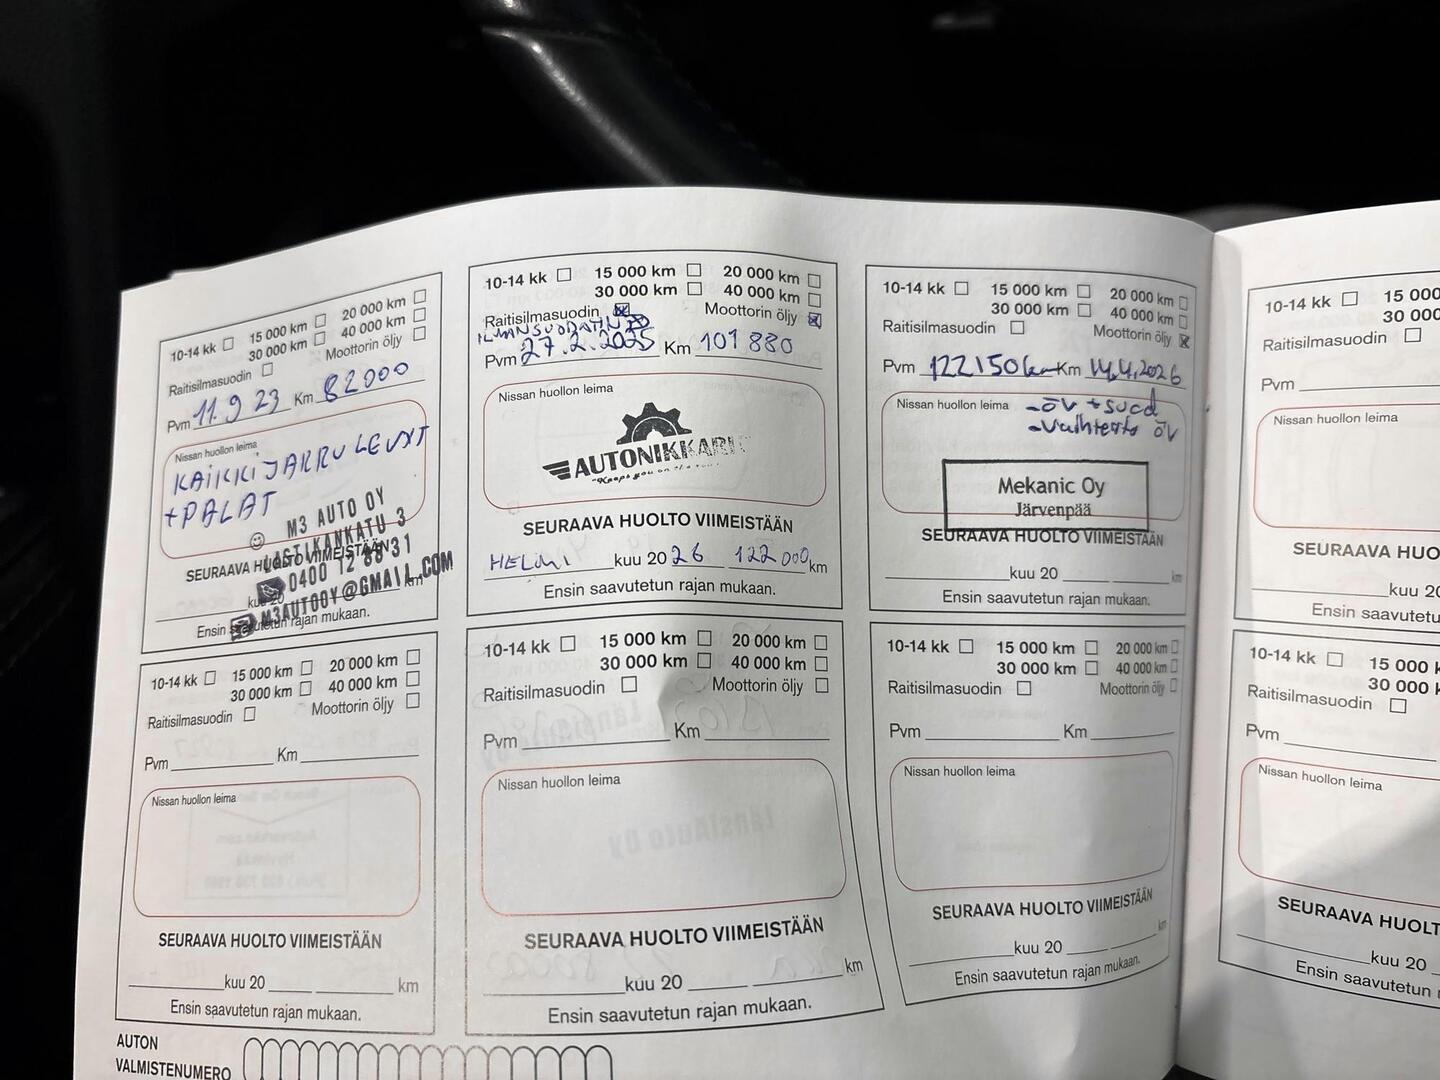 10-14 kk 15 000 km 20 000 km
30 000 km 40 000 km
Raitisilmasuodin Moottorin öljy
Pvm 11.9 23 Km 82000
Nissan huollon leima
KAIKKI JARRULEVYT
+PALAT
M3 AUTO OY
LASTIKANKATU 3
SEURAAVA HUOLTO VIIMEISTÄÄN
0400 12 88 31
kuu 20 km
M3AUTOOY@GMAIL.COM
Ensin saavutetun rajan mukaan.
10-14 kk 15 000 km 20 000 km
30 000 km 40 000 km
Raitisilmasuodin Moottorin öljy
ILMANSUODATIN
Pvm 27.2.2025 Km 101 880
Nissan huollon leima
AUTONIKKARI
Keeps you on the
SEURAAVA HUOLTO VIIMEISTÄÄN
HELMI kuu 20 26 122 000 km
Ensin saavutetun rajan mukaan.
10-14 kk 15 000 km 20 000 km
30 000 km 40 000 km
Raitisilmasuodin Moottorin öljy
Pvm 122150km Km 14.4.2026
Nissan huollon leima -öv + suod
-Vaihteisto öv
Mekanic Oy
Järvenpää
SEURAAVA HUOLTO VIIMEISTÄÄN
kuu 20 km
Ensin saavutetun rajan mukaan.
10-14 kk 15 000
30 000
Raitisilmasuodin
Pvm
Nissan huollon leima
SEURAAVA HUO
kuu 20
Ensin saavutetu
10-14 kk 15 000 km 20 000 km
30 000 km 40 000 km
Raitisilmasuodin Moottorin öljy
Pvm Km
Nissan huollon leima
SEURAAVA HUOLTO VIIMEISTÄÄN
kuu 20 km
Ensin saavutetun rajan mukaan.
10-14 kk 15 000 km 20 000 km
30 000 km 40 000 km
Raitisilmasuodin Moottorin öljy
Pvm Km
Nissan huollon leima
SEURAAVA HUOLTO VIIMEISTÄÄN
kuu 20 km
Ensin saavutetun rajan mukaan.
10-14 kk 15 000 km 20 000 km
30 000 km 40 000 km
Raitisilmasuodin Moottorin öljy
Pvm Km
Nissan huollon leima
SEURAAVA HUOLTO VIIMEISTÄÄN
kuu 20 km
Ensin saavutetun rajan mukaan.
10-14 kk 15 000 k
30 000 k
Raitisilmasuodin
Pvm
Nissan huollon leima
SEURAAVA HUOLT
kuu 20
Ensin saavutetun
AUTON
VALMISTENUMERO